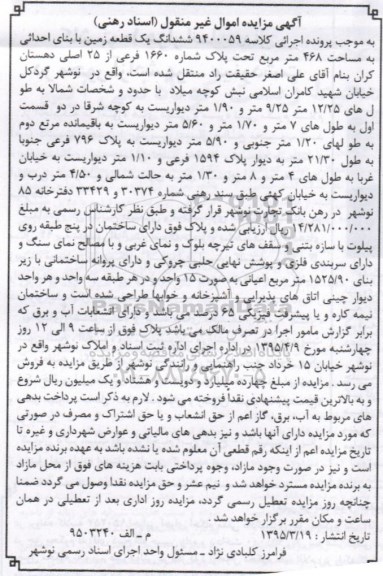 آگهی مزایده اموال غیر منقول (اسناد رهنی)
به موجب پرونده اجرائی کلاسه ۹۴۰۰۰۵۹ ششدانگ یک قطعه زمین با بنای احداثی
به مساحت ۴۶۸ متر مربع تحت پلاک شماره ۱۶۶۰ فرعی از ۲۵ اصلی دهستان
کران بنام آقای علی اصغر حقیقت راد منتقل شده است، واقع در نوشهر گردکل
خیابان شهید کامران اسلامی نبش کوچه میلاد با حدود و مشخصات شمالا به طو
ل های ۱۲/۲۵ متر ۹/۲۵ متر و ۱/۹۰ متر دیواریست به کوچه شرقا در دو قسمت
اول به طول های ۷ متر و ۱/۷۰ متر و ۵/۶۰ متر دیواریست به باقیمانده مرتع دوم
به طو لهای ۱/۲۰ متر جنوبی و ۵/۹۰ متر دیواریست به پلاک ۷۹۶ فرعی جنوبا
به طول ۲۱/۳۰ متر به دیوار پلاک ۱۵۹۴ فرعی و ۱/۱۰ متر دیواریست به خیابان
غربا به طول های ۴ متر و ۸ متر و ۱/۳۰ متر به حالت شمالی و ۴/۵۰ متر درب و
دیواریست به خیابان کهنی طبق سند رهنی شماره ۳۰۳۷۴ و ۳۳۴۲۹ دفترخانه ۸۵
نوشهر در رهن بانک تجارت نوشهر قرار گرفته و طبق نظر کارشناس رسمی به مبلغ
۱۴/۲۸۱/۰۰۰/۰۰۰ ریال ارزیابی شده و پلاک فوق دارای ساختمان در پنج طبقه روی
پیلوت با سازه بتنی و سقف های تیرچه بلوک و نمای غربی و با مصالح نمای سنگ و
دارای سربندی فلزی و پوشش نهایی حلبی چروکی و دارای پروانه ساختمانی با زیر
بنای ۱۵۲۵/۹۰ متر مربع اعیانی به صورت ۱۵ واحد و در هر طبقه سه واحد و هر واحد
دیوار چینی اتاق های پذیرایی و آشپزخانه و خوابها طراحی شده است و ساختمان
نیمه کاره و با پیشرفت فیزیکی ۶۵ درصد می باشد و دارای انشعابات آب و برق که
برابر گزارش مامور اجرا در تصرف مالک می باشد پلاک فوق از ساعت ۹ الی ۱۲ روز
چهارشنبه مورخ ۱۳۹۵/۴/۹ در اداره اجرای اداره ثبت اسناد و املاک نوشهر واقع در
نوشهر خیابان ۱۵ خرداد جنب راهنمایی و رانندگی نوشهر از طریق مزایده به فروش
می رسد . مزایده از مبلغ چهارده میلیارد و دویست و هشتاد و یک میلیون ریال شروع
و به بالاترین قیمت پیشنهادی نقدا فروخته می شود . لازم به ذکر است پرداخت بدهی
های مربوط به آب، برق، گاز اعم از حق انشعاب و یا حق اشتراک و مصرف در صورتی
که مورد مزایده دارای آنها باشد و نیز بدهی های مالیاتی و عوارض شهرداری و غیره تا
تاریخ مزایده اعم از اینکه رقم قطعی آن معلوم شده یا نشده باشد به عهده برنده مزایده
است و نیز در صورت وجود مازاد، وجوه پرداختی بابت هزینه های فوق از محل مازاد
به برنده مزایده مسترد خواهد شد و نیم عشر و حق مزایده نقدا وصول می گردد ضمنا
چنانچه روز مزایده تعطیل رسمی گردد، مزایده روز اداری بعد از تعطیلی در همان
ساعت و مکان مقرر برگزار خواهد شد .
تاریخ انتشار : ۱۳۹۵/۳/۱۹ م ـ الف ۹۵۰۳۲۴۰
فرامرز کلبادی نژاد ـ مسئول واحد اجرای اسناد رسمی نوشهر